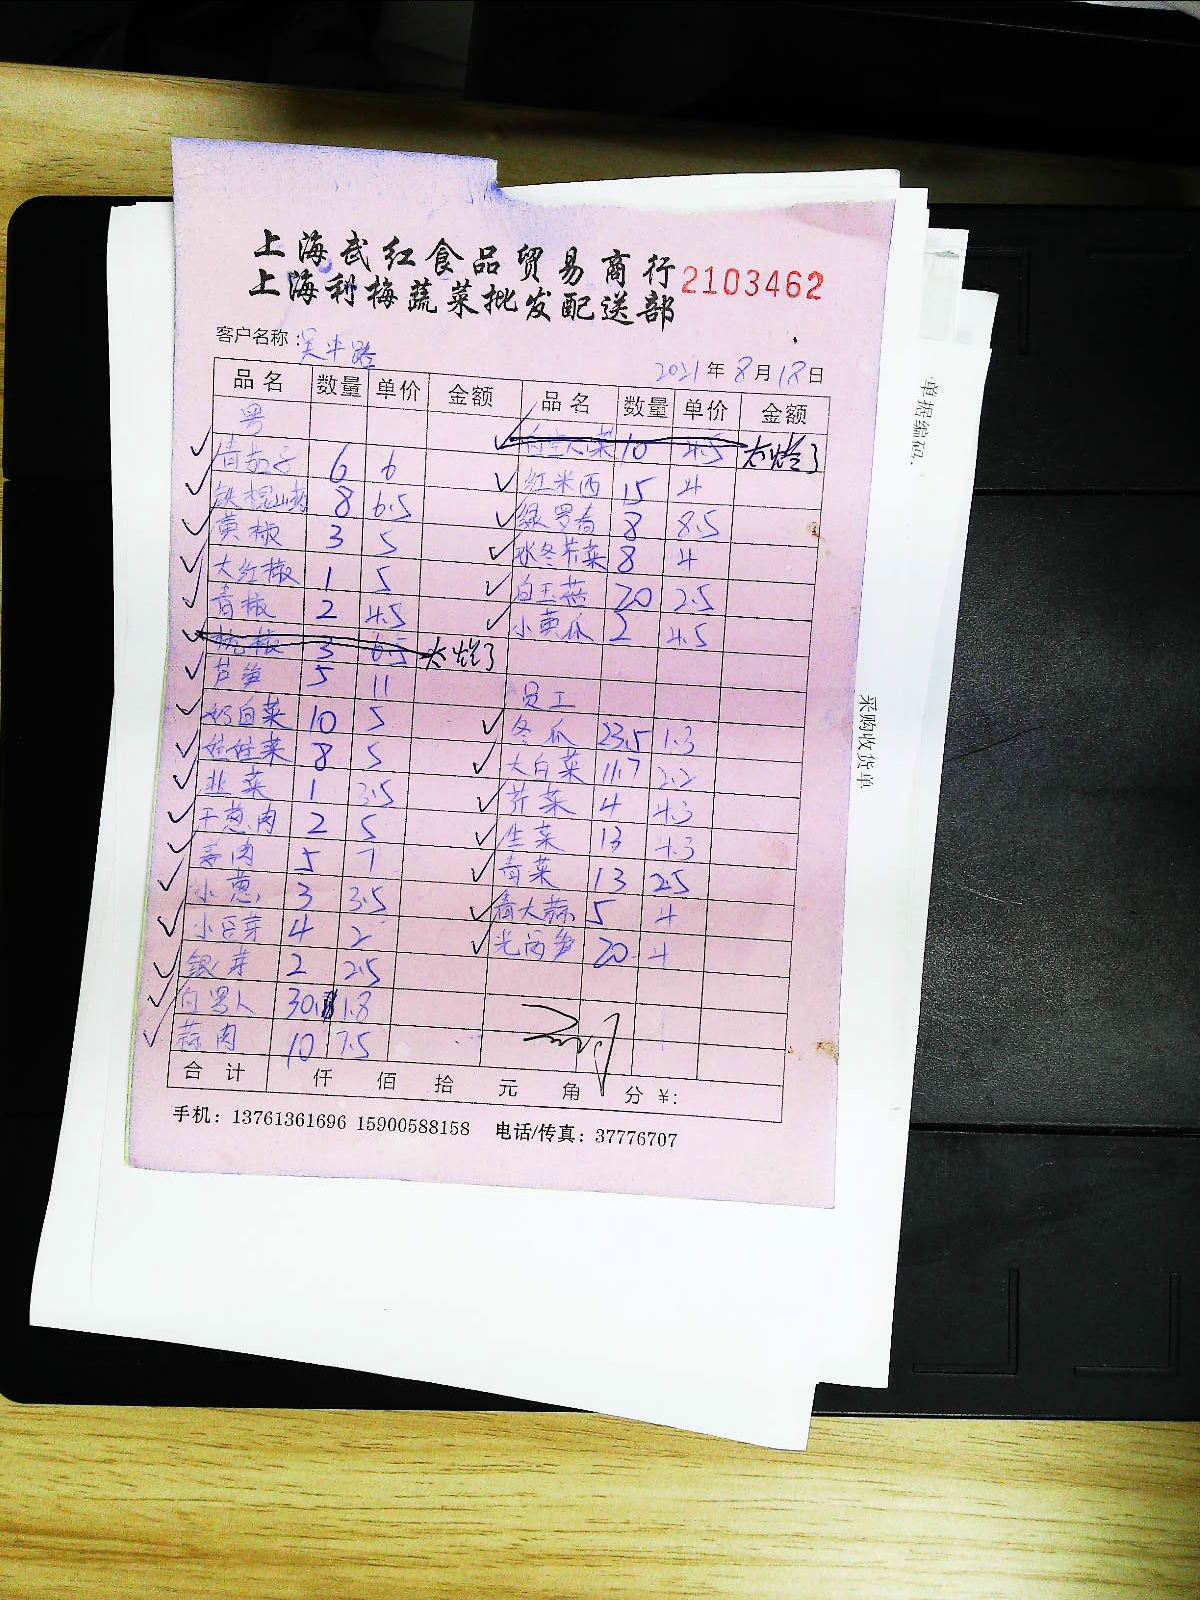 上海武红食品贸易商行
上海利梅蔬菜批发配送部
2103462
客户名称：吴中路
2021年8月18日
品名 数量 单价 金额 品名 数量 单价 金额
粤
青茄子 6 6
铁棍山药 8 6.5
黄椒 3 5
大红椒 1 5
青椒 2 4.5
3 6.5 太烂了
芦笋 5 11
奶白菜 10 5
娃娃菜 8 5
韭菜 1 3.5
干葱肉 2 5
姜肉 5 7
小葱 3 3.5
小豆芽 4 2
银芽 2 2.5
30. 1.8
蒜肉 10 7.5
10 4.5 太烂了
红米苋 15 4
8 8.5
水冬芥菜 8 4
白玉菇 20 2.5
小黄瓜 2 4.5
员工
冬瓜 23.5 1.3
大白菜 11.7 2.2
芹菜 4 4.3
生菜 13 4.3
青菜 13 2.5
青大蒜 5 4
光莴笋 20 4
合计 仟 佰 拾 元 角 分 ¥：
手机：13761361696 15900588158 电话/传真：37776707
单据编码：
采购收货单